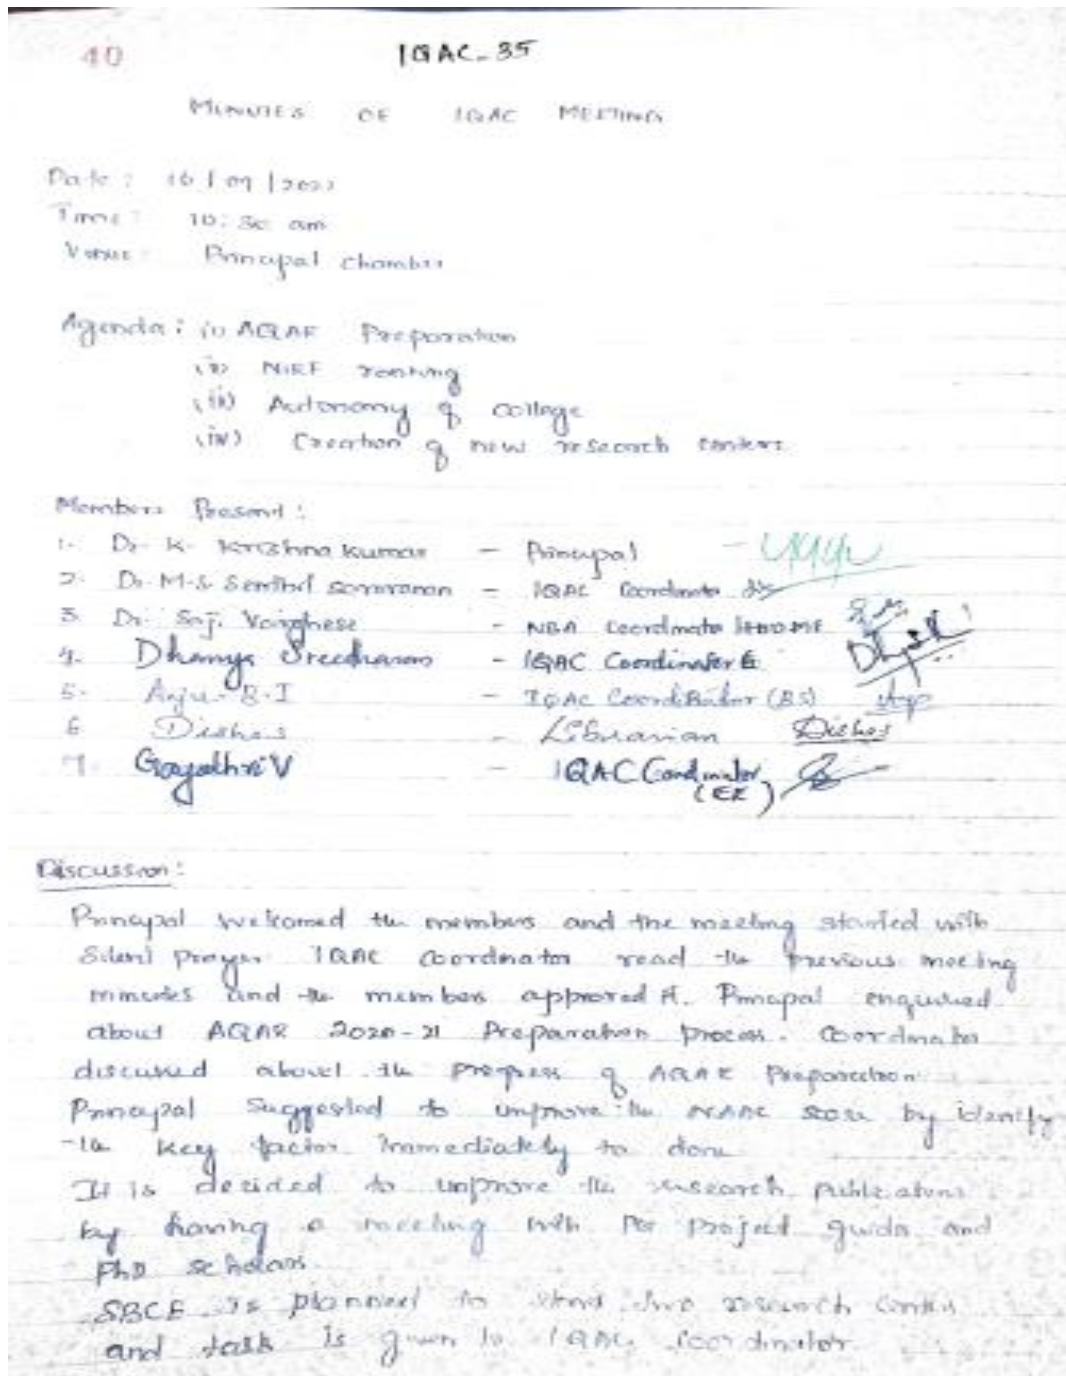 40
IQAC-35
MINUTES OF IQAC MEETING
Date: 16/09/2021
Time: 10:30 am
Venue: Principal chamber
Agenda: (i) AQAR Preparation
(ii) NIRF ranking
(iii) Autonomy of college
(iv) Creation of new research centers
Members Present:
1. Dr. K. Krishna Kumar - Principal -
2. Dr. M.S. Senthil Saravanan - IQAC Coordinator
3. Dr. Saji Varghese - NBA Coordinator HODME
4. Dhanya Sreedharan - IQAC Coordinator
5. Anju. B. I - IQAC Coordinator (BS)
6 Disha S - Librarian Disha S
7. Gayathri V - IQAC Coordinator
(EE)
Discussion:
Principal welcomed the members and the meeting started with
Silent prayer IQAC coordinator read the previous meeting
minutes and the members approved it. Principal enquired
about AQAR 2020-21 Preparation process. Coordinator
discussed about the progress of AQAR Preparation
Principal Suggested to improve the NAAC score by identify
the key factor immediately to done
It is decided to improve the research publications
by having a meeting with PG project guide and
PhD scholars.
SBCE is planned to start two research centers
and task is given to IQAC coordinator.